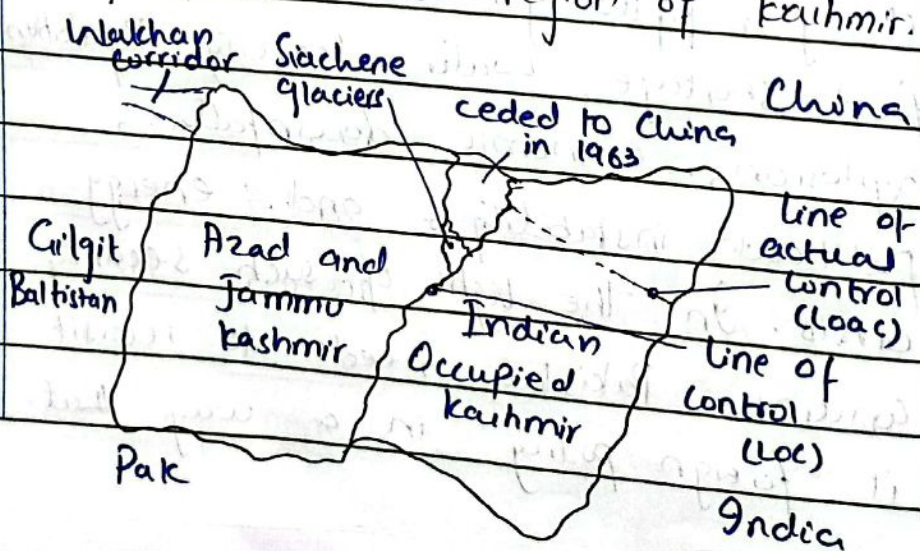 of kashmir.
Wakhan
corridor
Siachene
glaciers
ceded to China
in 1963
China
Line of
actual
control
(LOAC)
Gilgit
Baltistan
Azad and
Jammu
kashmir
Indian
Occupied
kashmir
Line of
control
(LOC)
Pak
India